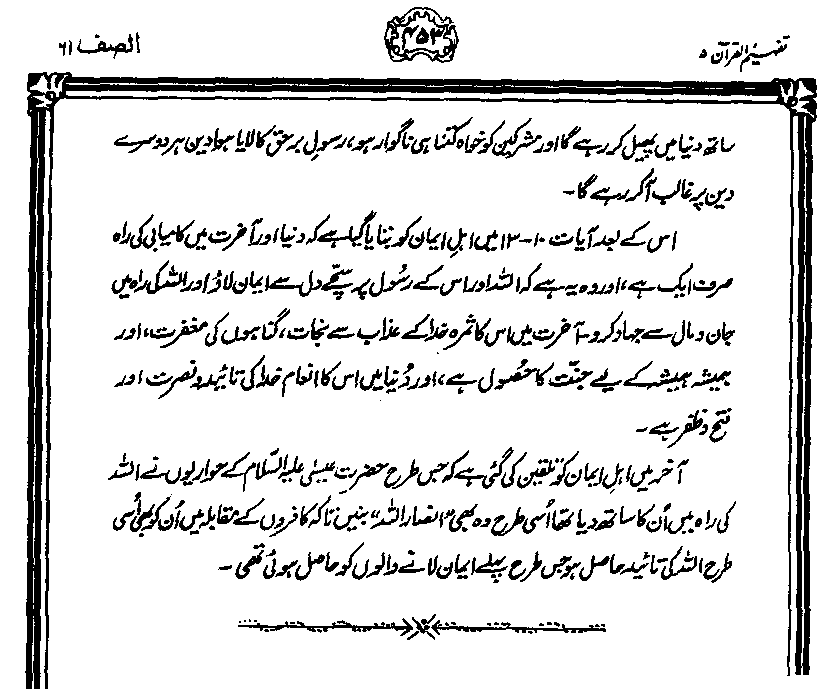 تفہیم القرآن ۵
۴۵۳
الصف ۶۱
ساتھ دنیا میں پھیل کر رہے گا اور مشرکین کو خواہ کتنا ہی ناگوار ہو، رسولِ برحق کا لایا ہوا دین ہر دوسرے
دین پر غالب آ کر رہے گا۔
اس کے بعد آیات ۱۰-۱۳ میں اہلِ ایمان کو بتایا گیا ہے کہ دنیا اور آخرت میں کامیابی کی راہ
صرف ایک ہے، اور وہ یہ ہے کہ اللہ اور اس کے رسُول پر سچّے دل سے ایمان لاؤ اور اللہ کی راہ میں
جان و مال سے جہاد کرو۔ آخرت میں اس کا ثمرہ خدا کے عذاب سے نجات، گناہوں کی مغفرت، اور
ہمیشہ ہمیشہ کے لیے جنّت کا حصُول ہے، اور دُنیا میں اس کا انعام خدا کی تائید و نصرت اور
فتح و ظفر ہے۔
آخر میں اہلِ ایمان کو تلقین کی گئی ہے کہ جس طرح حضرت عیسٰی علیہ السّلام کے حواریوں نے اللہ
کی راہ میں اُن کا ساتھ دیا تھا اُسی طرح وہ بھی "انصار اللہ" بنیں تاکہ کافروں کے مقابلہ میں اُن کو بھی اُسی
طرح اللہ کی تائید حاصل ہو جس طرح پہلے ایمان لانے والوں کو حاصل ہوئی تھی۔